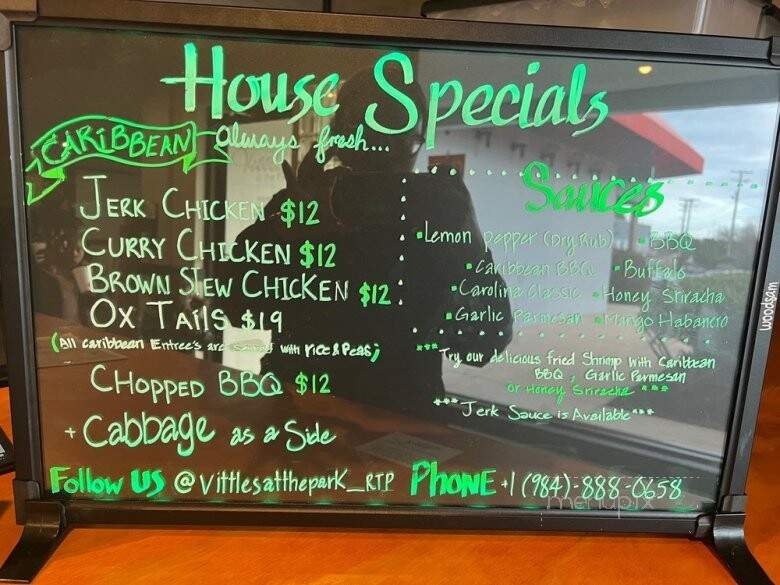 House Specials
CARIBBEAN
always fresh...
JERK CHICKEN $12
CURRY CHICKEN $12
BROWN STEW CHICKEN $12
OX TAILS $19
(All caribbean Entree's are served with rice & Peas)
CHOPPED BBQ $12
+ Cabbage as a Side
Sauces
Lemon pepper (Dry Rub)
BBQ
Caribbean BBQ
Buffalo
Carolina Classic
Honey Sriracha
Garlic Parmesan
Mango Habanero
*** Try our delicious fried Shrimp with Caribbean
BBQ, Garlic Parmesan
or Honey Sriracha ***
*** Jerk Sauce is Available ***
Follow US @vittlesatthepark_RTP PHONE +1 (984)-888-0658
woodsam
menupix